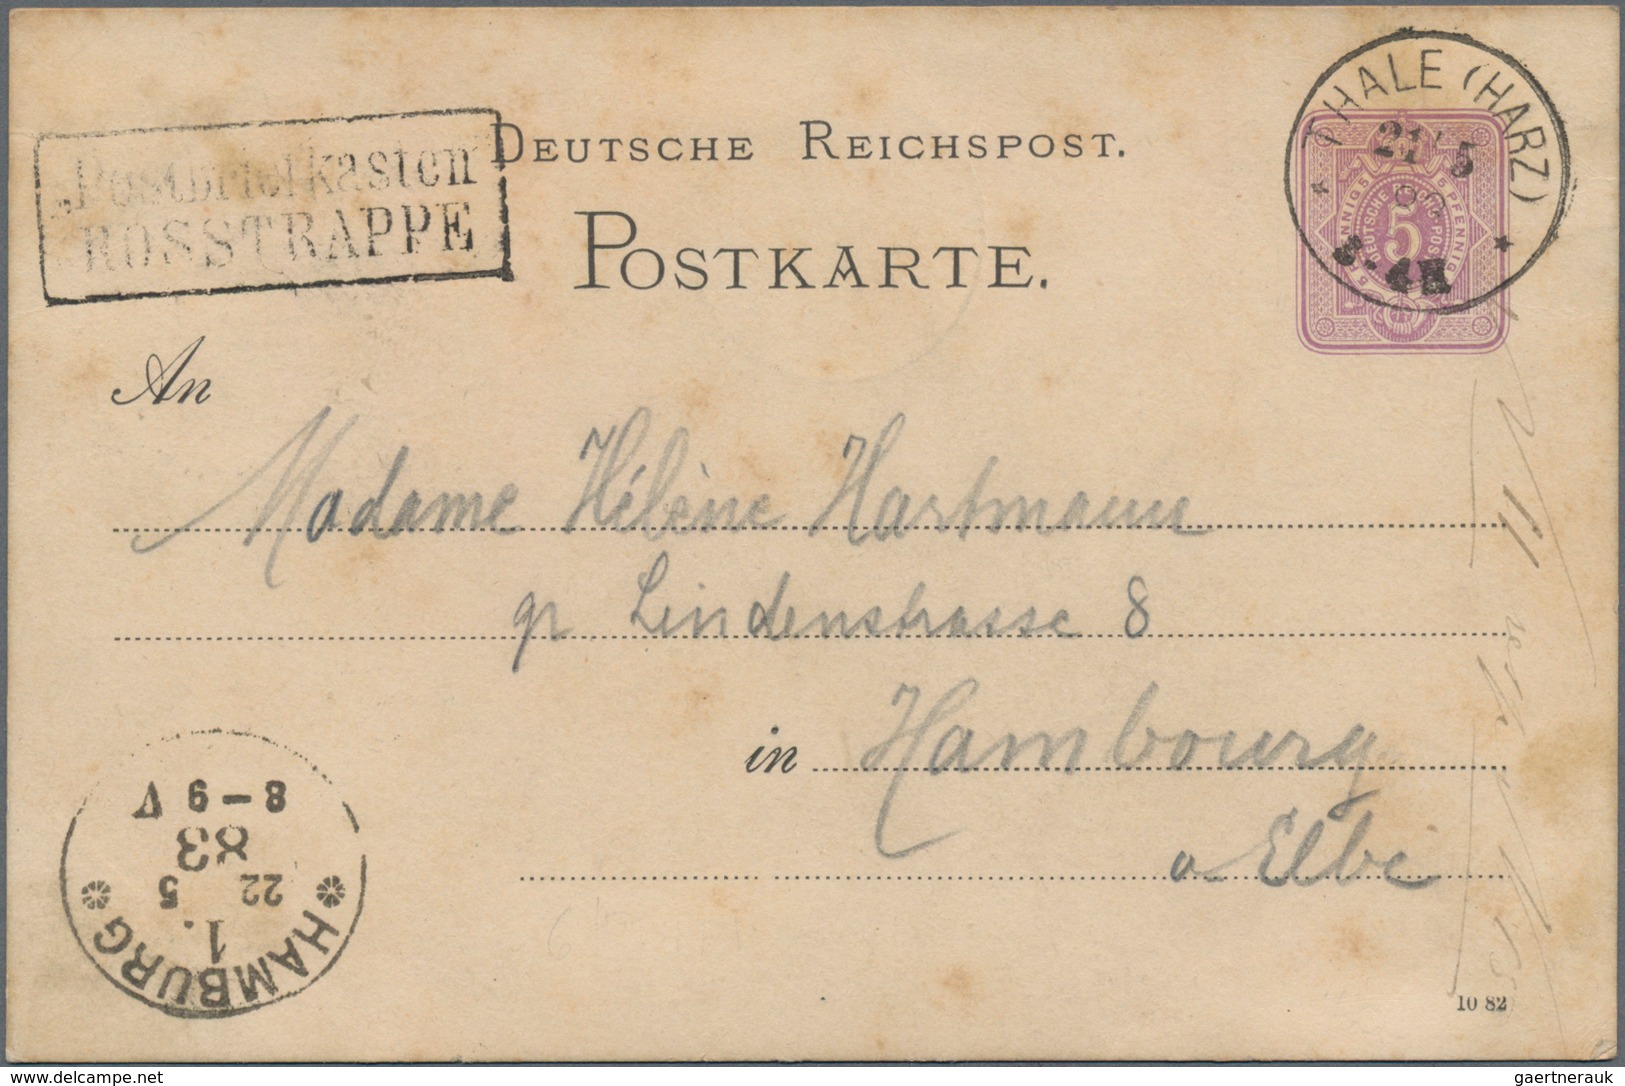 Postbriefkasten
ROSSTRAPPE
DEUTSCHE REICHSPOST.
POSTKARTE.
THALE (HARZ)
21 5
3-4N
5 PFENNIG 5 PFENNIG
DEUTSCHE REICHS-POST
5
An
Madame Hélène Hartmann
gr. Lindenstrasse 8
in Hambourg
a Elbe
HAMBURG
1.
22 5
83
8-9 V
10 82
delcampe.net
gaertnerauk